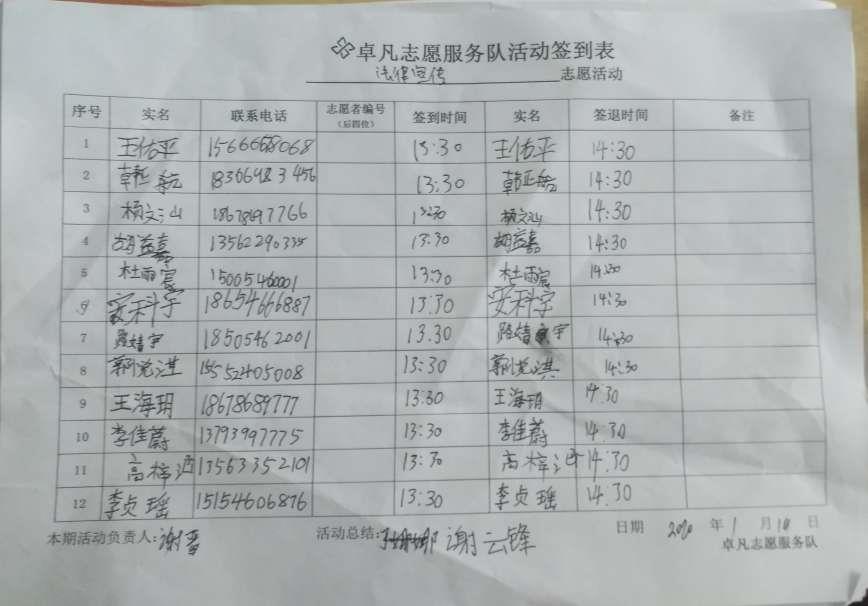 卓凡志愿服务队活动签到表
法律宣传 志愿活动
序号 实名 联系电话 志愿者编号（后四位） 签到时间 实名 签退时间 备注
1 王佑平 15666668068 13:30 王佑平 14:30
2 13:30 14:30
3 杨文汕 18678697766 13:30 杨文汕 14:30
4 胡益嘉 13562290335 13:30 胡益嘉 14:30
5 杜雨宸 15005460001 13:30 杜雨宸 14:30
6 安科宇 18654666887 13:30 安科宇 14:30
7 18505462001 13:30 14:30
8 15552405008 13:30 14:30
9 王海玥 18678689777 13:30 王海玥 14:30
10 李佳蔚 13793997775 13:30 李佳蔚 14:30
11 高梓涵 13563352101 13:30 高梓涵 14:30
12 李贞瑶 15154606876 13:30 李贞瑶 14:30
本期活动负责人: 活动总结: 谢云锋 日期 2020 年 1 月 10 日
卓凡志愿服务队